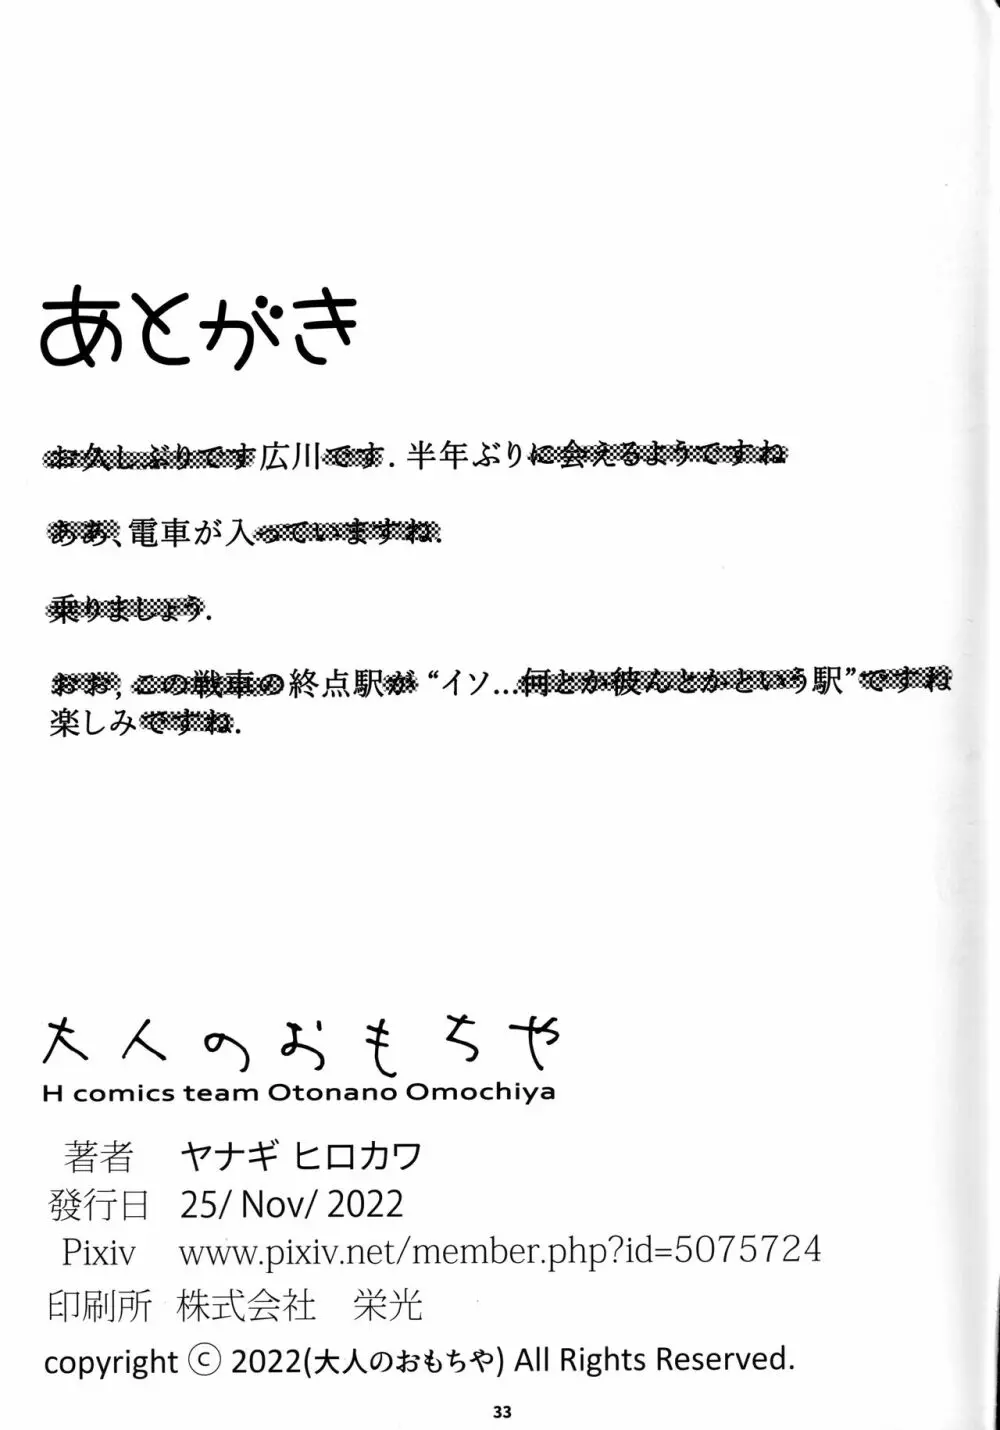 あとがき
お久しぶりです広川です. 半年ぶりに会えるようですね
ああ、電車が入っていますね.
乗りましょう.
おお, この戦車の終点駅が “イソ...何とか彼んとかという駅”ですね
楽しみですね.
大人のおもちや
H comics team Otonano Omochiya
著者 ヤナギ ヒロカワ
發行日 25/ Nov/ 2022
Pixiv www.pixiv.net/member.php?id=5075724
印刷所 株式会社 栄光
copyright ⓒ 2022(大人のおもちや) All Rights Reserved.
33